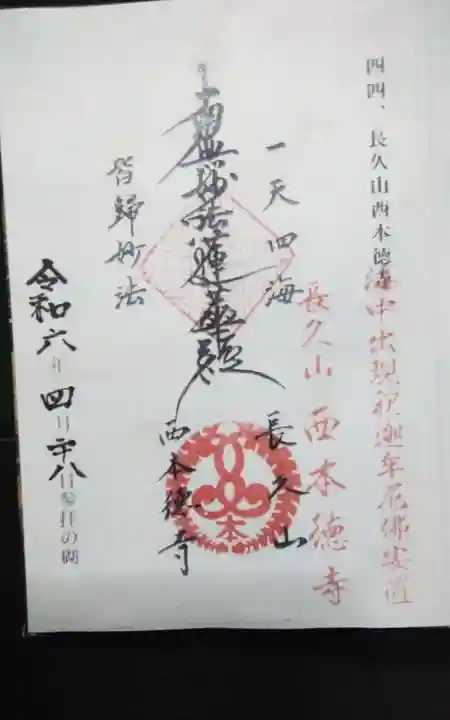 四四、長久山西本徳
海中出現釈迦牟尼佛安置
長久山西本徳寺
一天四海
長久山
南無妙法蓮華経
西本徳寺
皆歸妙法
本
令和六年四月廿八日参拝の砌